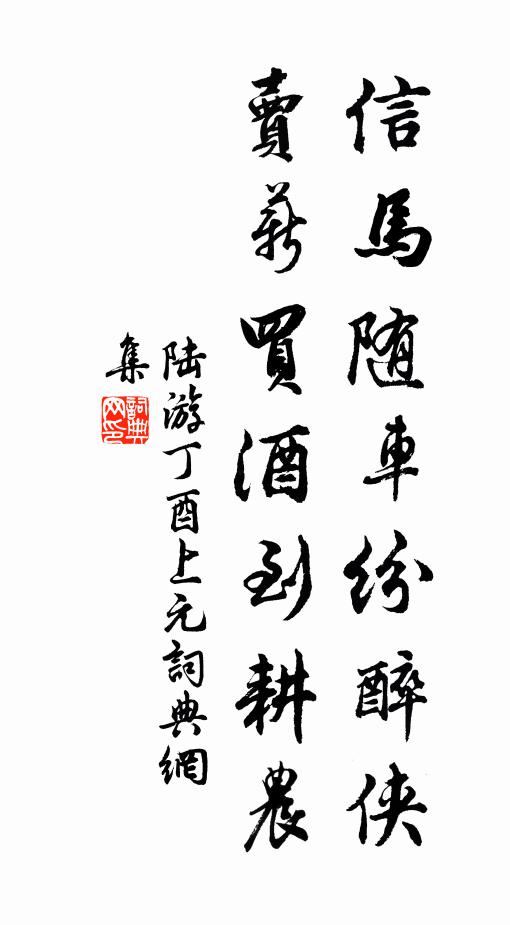 信馬随車紛醉俠
賣薪買酒到耕農
陆游丁酉上元詞典網
集
詞典
网印